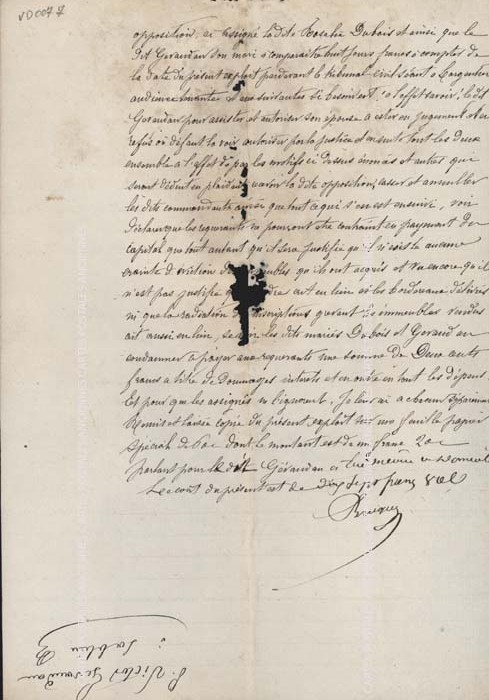 VD007 7
opposition, ai assigné la dite Rosalie Dubois et ainsi que le
dit Géraudan son mari à comparaître huit jours francs à compter de
la date du présent exploit pardevant le tribunal civil séant à Largentière
audience tenante et aux suivantes si besoin est, à l'effet savoir; le dit
Géraudan pour assister et autoriser son épouse à ester en jugement et au
refus où défaut la voir autoriser par la justice et ensuite tout les deux
ensemble à l'effet de par les motifs ci dessus énoncés et autres que
seront déduit en plaidant la dite opposition, casser et annuller
les dits commandants que tout ce qui s'en est ensuivi, voir
déclarer que les requérants ne pourront être contraint en payment du
capital que tout autant qu'il sera justifié qu'il n'existe aucune
crainte d'éviction qu'ils ont acquis et vu encore qu'il
n'est pas justifié ait en lieu et les bordereaux délivrés
ni que la radiation inscriptions grevant les immeubles vendus
ait aussi eu lieu, les dits mariés Dubois et Géraud en
condamner à payer aux requérants une somme de Deux cents
francs à titre de Dommages interets et en outre en tout les dépens
Et pour que les assignés n'ignorent, je leur ai
Remis et laissé copie du présent exploit sur une feuille papier
spécial de 60c dont le montant est de un franc 20c
parlant pour le dit Géraudan à lui même à
Le coût du présent est de Dix sept francs
P. Victor Geraudan
à Sablière